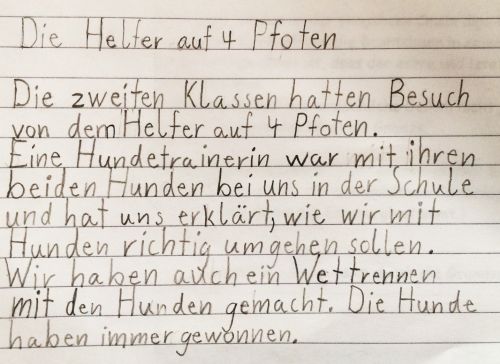 Die Helfer auf 4 Pfoten
Die zweiten Klassen hatten Besuch
von dem Helfer auf 4 Pfoten.
Eine Hundetrainerin war mit ihren
beiden Hunden bei uns in der Schule
und hat uns erklärt, wie wir mit
Hunden richtig umgehen sollen.
Wir haben auch ein Wettrennen
mit den Hunden gemacht. Die Hunde
haben immer gewonnen.